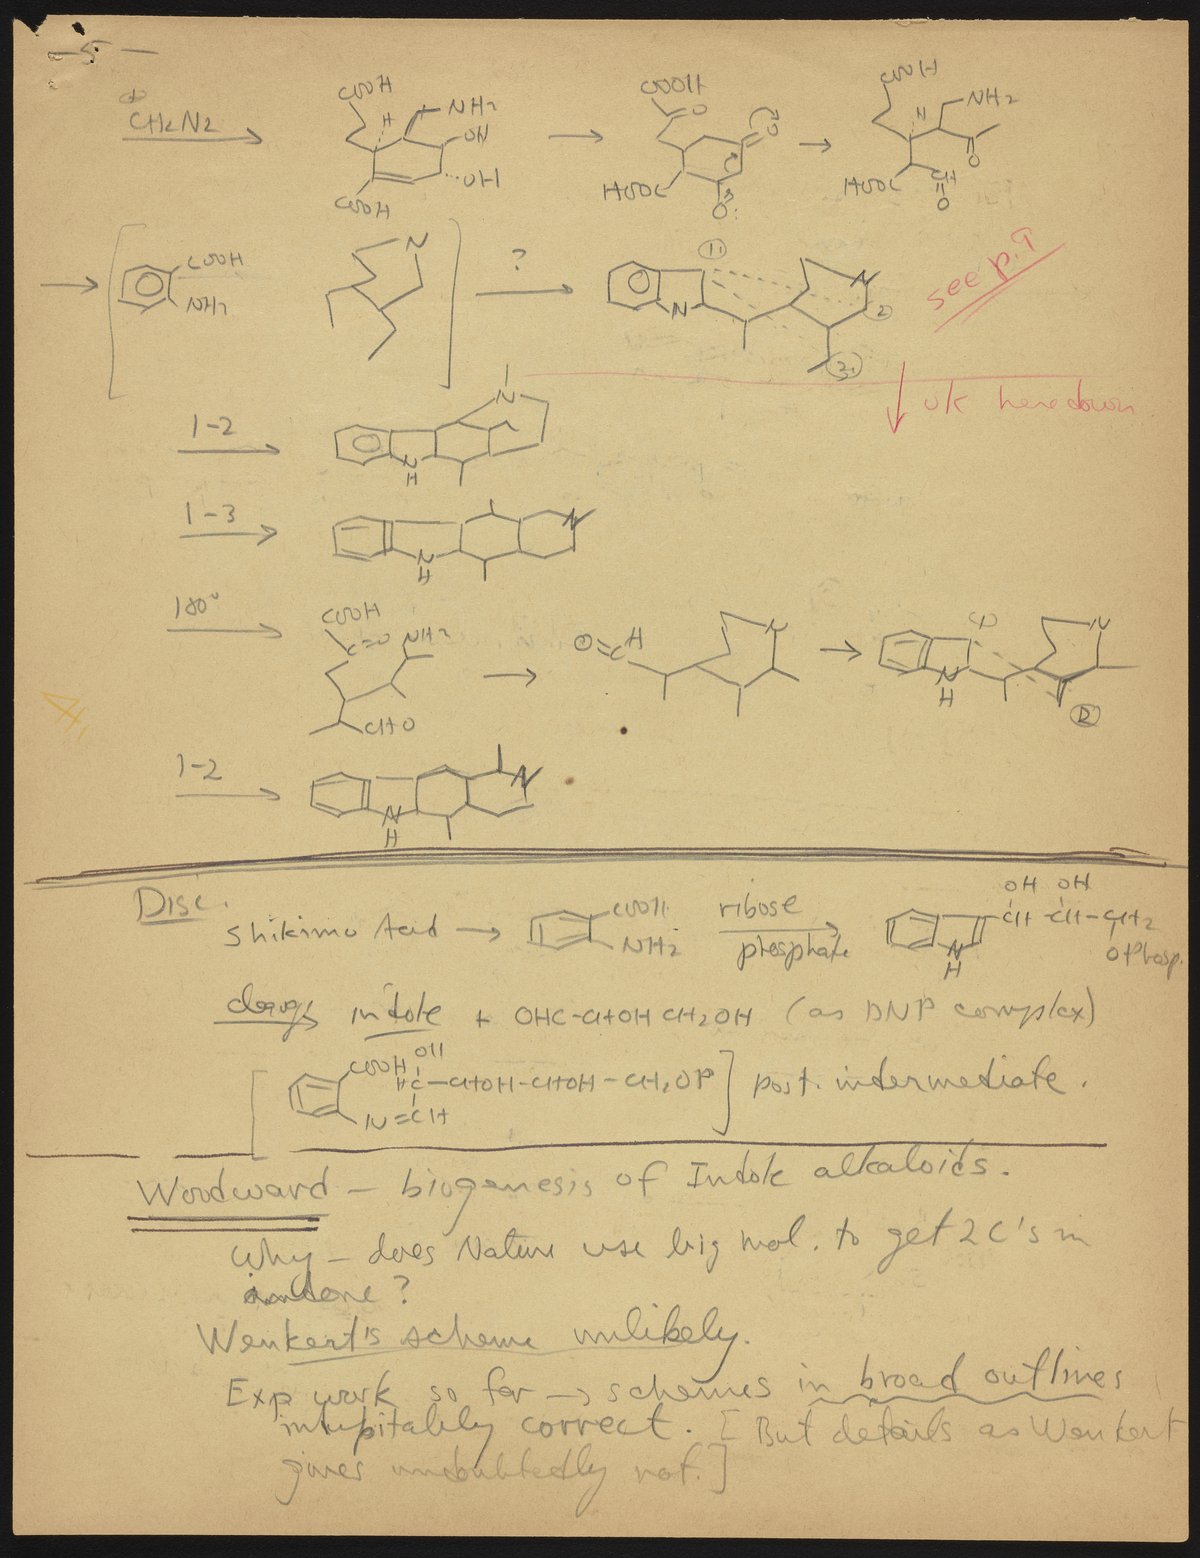 — 5 —
⊕
CH2N2
COOH H NH2 OH OH COOH
COOH O O HOOC O
COOH H NH2 O HOOC CH O
COOH NH2
N
?
1. N N 2 3.
see p. 9
ok here down
1-2 N N H
1-3 N H N
180° COOH C=O NH2 CHO
O=C H N
1 N H N 2
1-2 N H N
Disc.
Shikimic Acid → COOH NH2 ribose phosphate N H OH OH CH-CH-CH2 OPhosp.
indole + OHC-CHOH CH2OH (as DNP complex)
[ COOH OH HC-CHOH-CHOH-CH2OP N=CH ] post. intermediate.
Woodward — biogenesis of Indole alkaloids.
Why — does Nature use big mol. to get 2 C's in
?
Wenkert's scheme unlikely.
Exp work so far → schemes in broad outlines
correct. [But details as Wenkert
gives undoubtedly not.]